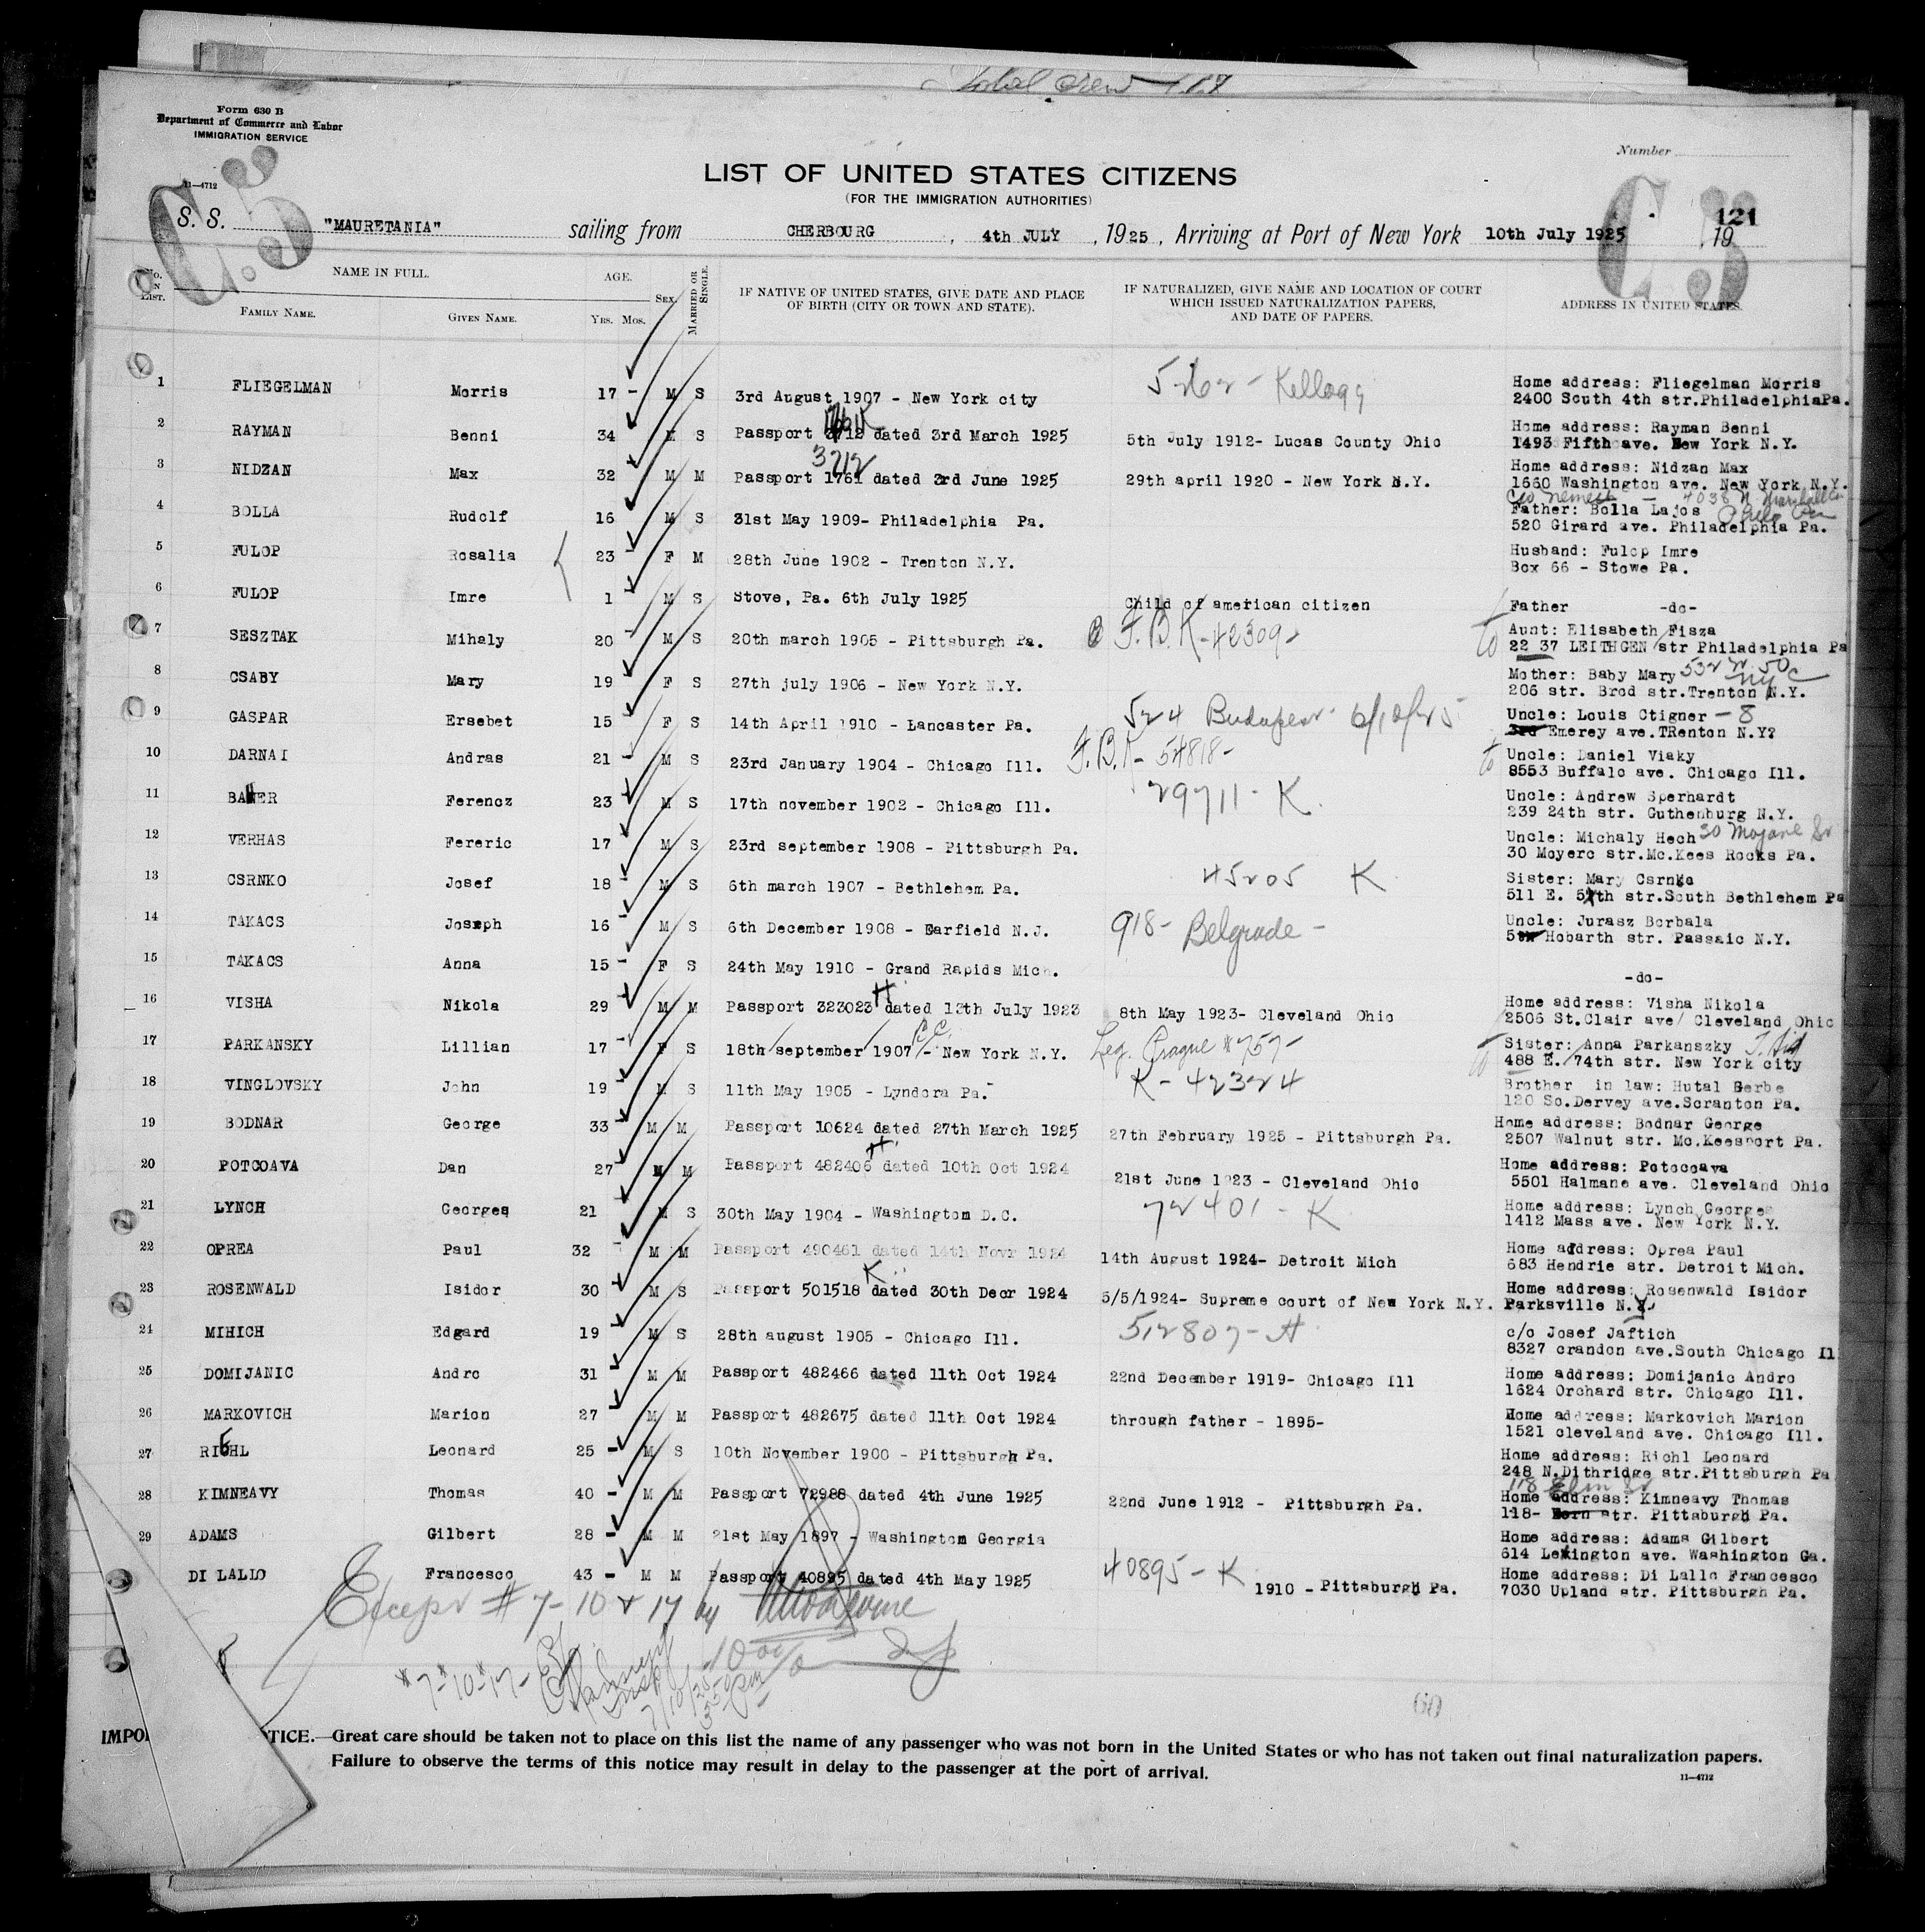 Total crew
Form 630 B
Department of Commerce and Labor
IMMIGRATION SERVICE
11—4712
Number
LIST OF UNITED STATES CITIZENS
(FOR THE IMMIGRATION AUTHORITIES)
C.5
C5
121
S. S. "MAURETANIA" sailing from CHERBOURG, 4th JULY, 1925, Arriving at Port of New York 10th July 1925, 19
No. ON LIST. NAME IN FULL. AGE. SEX. MARRIED OR SINGLE. IF NATIVE OF UNITED STATES, GIVE DATE AND PLACE OF BIRTH (CITY OR TOWN AND STATE). IF NATURALIZED, GIVE NAME AND LOCATION OF COURT WHICH ISSUED NATURALIZATION PAPERS, AND DATE OF PAPERS. ADDRESS IN UNITED STATES.
FAMILY NAME. GIVEN NAME. YRS. MOS.
1 FLIEGELMAN Morris 17 - M S 3rd August 1907 - New York city 5262 - Kellogg Home address: Fliegelman Morris
2400 South 4th str.PhiladelphiaPa.
2 RAYMAN Benni 34 M S Passport 3712 dated 3rd March 1925 5th July 1912- Lucas County Ohio Home address: Rayman Benni
1493 Fifth ave. New York N.Y.
3712
3 NIDZAN Max 32 M M Passport 1761 dated 3rd June 1925 29th april 1920 - New York N.Y. Home address: Nidzan Max
1660 Washington ave. New York N.Y.
c/o Nemeth - 4038 N Marshall
4 BOLLA Rudolf 16 M S 31st May 1909- Philadelphia Pa. Father: Bolla Lajos Phila Pa
520 Girard ave. Philadelphia Pa.
5 FULOP Rosalia 23 F M 28th June 1902 - Trenton N.Y. Husband: Fulop Imre
Box 66 - Stowe Pa.
6 FULOP Imre 1 M S Stove, Pa. 6th July 1925 Child of american citizen Father -do-
7 SESZTAK Mihaly 20 M S 20th march 1905 - Pittsburgh Pa. F.B.K-42309- Aunt: Elisabeth Fisza
22 37 LEITHGEN str Philadelphia Pa
8 CSABY Mary 19 F S 27th july 1906 - New York N.Y. Mother: Baby Mary 532 W 50 NYC
206 str. Brod str.Trenton N.Y.
9 GASPAR Ersebet 15 F S 14th April 1910 - Lancaster Pa. 524 Budapest 6/10/25 Uncle: Louis Ctigner - 8
3rd Emerey ave.TRenton N.Y?
10 DARNAI Andras 21 - M S 23rd January 1904 - Chicago Ill. F.B.K- 54818- Uncle: Daniel Viaky
8553 Buffalo ave. Chicago Ill.
11 BAHER Ferencz 23 M S 17th november 1902 - Chicago Ill. 29711- K. Uncle: Andrew Sperhardt
239 24th str. Guthenburg N.Y.
12 VERHAS Fereric 17 M S 23rd september 1908 - Pittsburgh Pa. Uncle: Michaly Hech 30
30 Moyerc str.Mc.Kees Rocks Pa.
13 CSRNKO Josef 18 M S 6th march 1907 - Bethlehem Pa. 45205 K Sister: Mary Csrnko
511 E. 5th str.South Bethlehem Pa
14 TAKACS Joseph 16 M S 6th December 1908 - Garfield N.J. 918- Belgrade - Uncle: Jurasz Borbala
Hobarth str. Passaic N.Y.
15 TAKACS Anna 15 - F S 24th May 1910 - Grand Rapids Mich. -do-
16 VISHA Nikola 29 M M Passport 323023 H dated 13th July 1923 8th May 1923- Cleveland Ohio Home address: Visha Nikola
2506 St.Clair ave/ Cleveland Ohio
17 PARKANSKY Lillian 17 - F S 18th september 1907 - New York N.Y. Leg. Prague #757- Sister: Anna Parkanszky
488 E. 74th str. New York city
18 VINGLOVSKY John 19 M S 11th May 1905 - Lyndora Pa. K-42324 Brother in law: Hutal Serbe
120 So.Dervey ave.Scranton Pa.
19 BODNAR George 33 M M Passport 10624 dated 27th March 1925 27th February 1925 - Pittsburgh Pa. Home address: Bodnar George
2507 Walnut str. Mc.Keesport Pa.
20 POTCOAVA Dan 27 M M Passport 482406 H dated 10th Oct 1924 21st June 1923 - Cleveland Ohio Home address: Potocoava
5501 Halmane ave. Cleveland Ohio
21 LYNCH Georges 21 M S 30th May 1904 - Washington D.C. 72401 - K Home address: Lynch Georges
1412 Mass ave. New York N.Y.
22 OPREA Paul 32 M M Passport 490461 dated 14th Novr 1924 14th August 1924- Detroit Mich Home address: Oprea Paul
683 Hendrie str. Detroit Mich.
23 ROSENWALD Isidor 30 M S Passport 501518 K dated 30th Decr 1924 5/5/1924- Supreme court of New York N.Y. Home address: Rosenwald Isidor
Parksville N.Y.
24 MIHICH Edgard 19 - M S 28th august 1905 - Chicago Ill. 512807-H c/o Josef Jaftich
8327 crandon ave.South Chicago Il
25 DOMIJANIC Andro 31 M M Passport 482466 dated 11th Oct 1924 22nd December 1919- Chicago Ill Home address: Domijanic Andro
1624 Orchard str. Chicago Ill.
26 MARKOVICH Marion 27 M M Passport 482675 dated 11th Oct 1924 through father - 1895- Home address: Markovich Marion
1521 cleveland ave. Chicago Ill.
27 RIEHL Leonard 25 - M S 10th November 1900 - Pittsburgh Pa. Home address: Richl Leonard
248 N.Dithridge str.Pittsburgh Pa
118 Elm St
28 KIMNEAVY Thomas 40 - M M Passport 72988 dated 4th June 1925 22nd June 1912 - Pittsburgh Pa. Home address: Kimneavy Thomas
118- str. Pittsburgh Pa.
29 ADAMS Gilbert 28 - M M 21st May 1897 - Washington Georgia Home address: Adams Gilbert
614 Lexington ave. Washington Ga.
DI LALLO Francesco 43 - M M Passport 40895 dated 4th May 1925 40895-K 1910 - Pittsburgh Pa. Home address: Di Lallo Francesco
7030 Upland str. Pittsburgh Pa.
Except # 7-10 & 17 by
#7-#10-#17-
Insp
7/10/25
350 PM
60
IMPO TICE.—Great care should be taken not to place on this list the name of any passenger who was not born in the United States or who has not taken out final naturalization papers.
Failure to observe the terms of this notice may result in delay to the passenger at the port of arrival.
11—4712